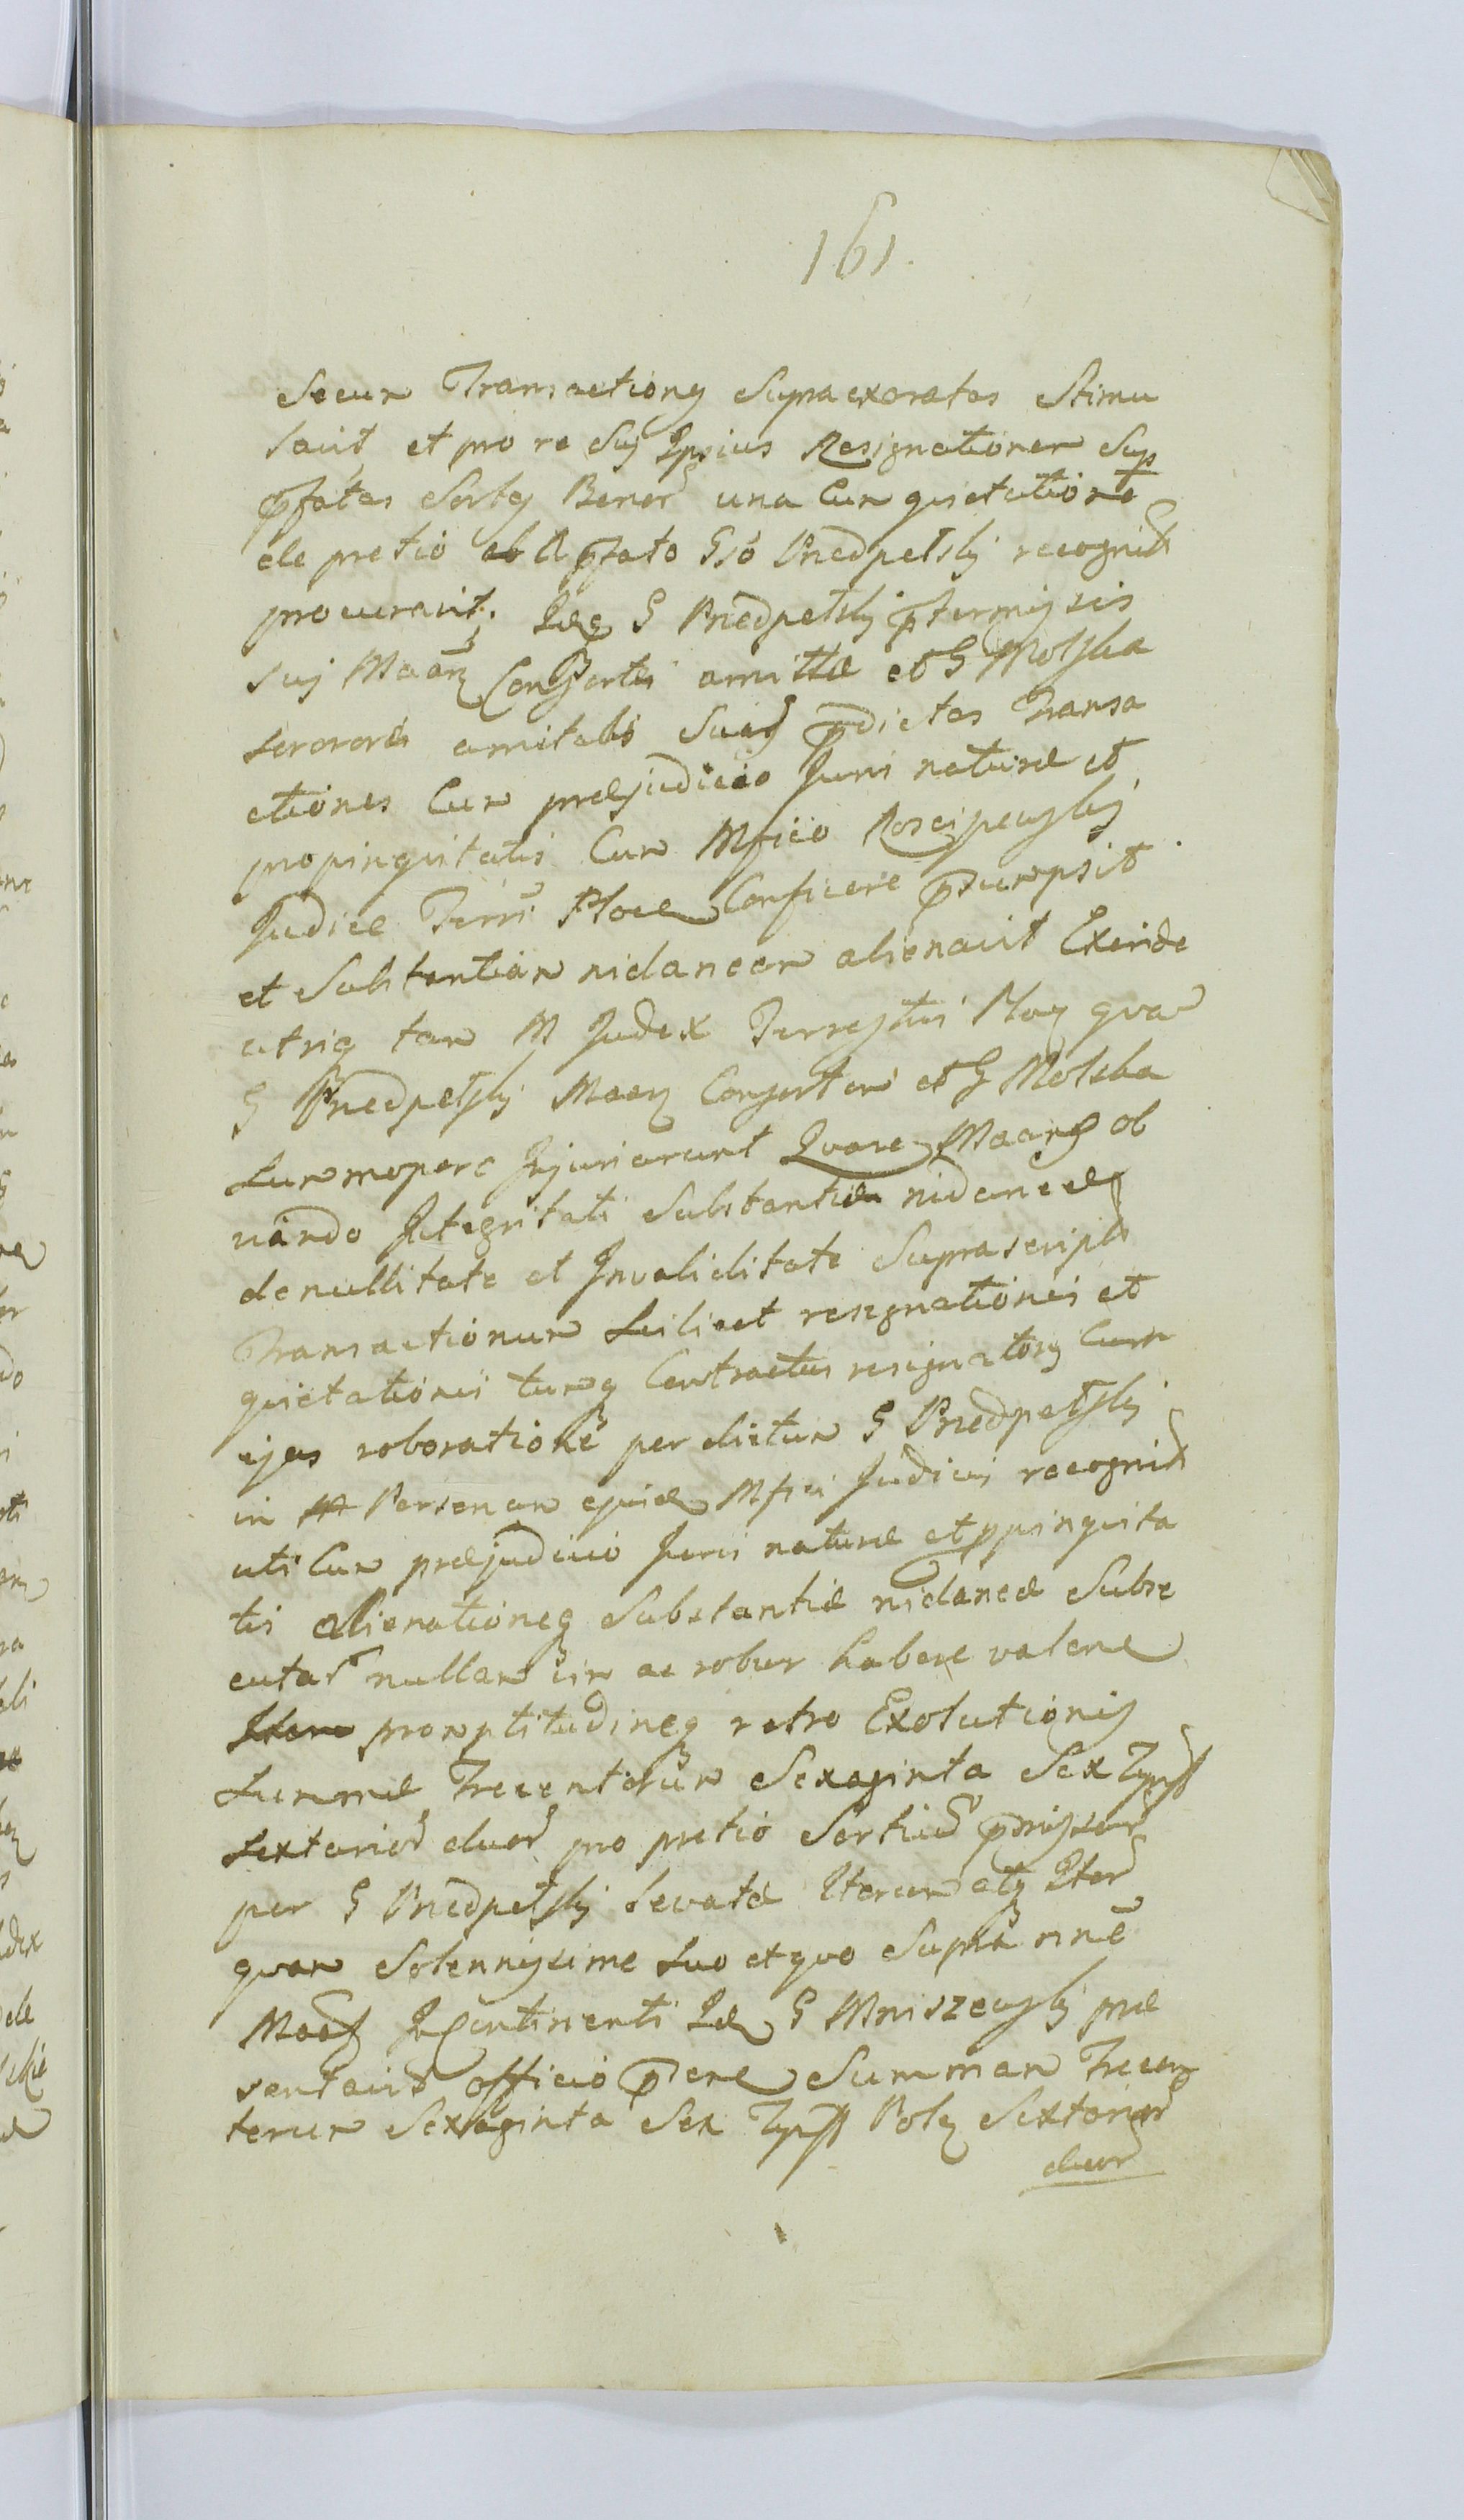 161.
Secum Transactiones Supra exaratas Stimu
lavit et pro re Sui Ipsius Resignationem Sup
pfatas Sortes Bonor una Cum quietatione
de pretio ab pfato Gso Przedpelski recognit
procuravit. Idq G Przedpelski ptermissis
suis Maan Consorte amitta et G Molska
Sororore amitali Suis pdictas Transa
ctiones Cum præjudicio Juris naturæ et
propinquitatis Cum Mfico Rosciszewski
Judice Terri Ploce Conficere psumpsit
et Substantiam nidaneam alienavit Exinde
utriq tam M Judex Terrestris Ploc quam
G Przedpelski Maan Consortem et G Molska
Summopere Injuriarunt Quare Maans ob
viando Integritati Substantiæ nidaneæ
de nullitate et Invaliditate Suprascript
Transactionum Scilicet resignationis et
quietationis tumq Contractus resignatorii Cum
ejus roboratione per dictum G Przedpelski
in Personam ejusdem Mfici Judicis recognit
uti Cum præjudicio Juris naturæ et ppinquita
tis alienationeq Substantiæ nidaneæ Subse
cutar nullam vim ac robur habere valere
promptitudineq retro Exolutionis
Summæ Trecentorum Sexaginta Sex Tynff
Sextarior duor pro pretio Sortium pmissar
per G Przedpelski levatæ Iterum atq Iter
quam Solennissime Suo et quo Supra nne
Maaf Incontinenti Idem G Mniszewski præ
sentavit officio pnti Summam Trecen
torum Sexaginta Sex Tynff Polon Sextarior
duor